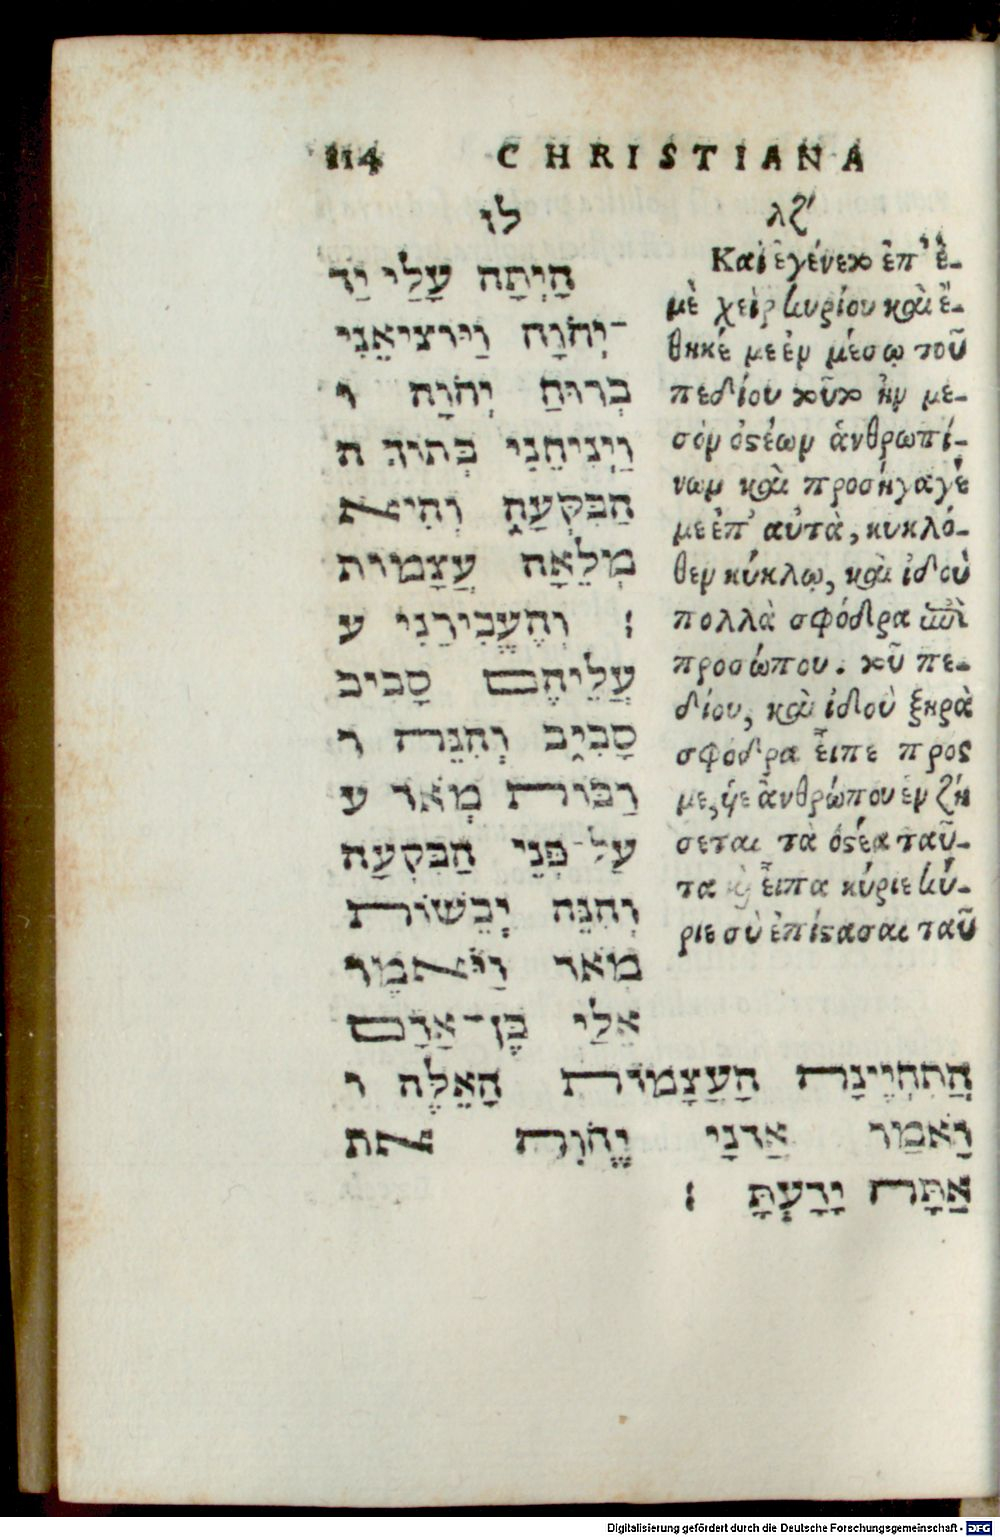 114 CHRISTIANA
לז
הָיְתָה עָלַי יַד
־יְהֹוָה וַיּוֹצִיאֵנִי
בְרוּחַ יְהֹוָה ו
וַיְנִיחֵנִי בְּתוֹךְ ה
הַבִּקְעָה וְהִיא
מְלֵאָה עֲצָמוֹת
׃ וְהֶעֱבִירַנִי ע
עֲלֵיהֶם סָבִיב
סָבִיב וְהִנֵּה ר
רַבּוֹת מְאֹד ע
עַל־פְּנֵי הַבִּקְעָה
וְהִנֵּה יְבֵשׁוֹת
מְאֹד וַיֹּאמֶר
אֵלַי בֶּן־אָדָם
הֲתִחְיֶינָה הָעֲצָמוֹת הָאֵלֶּה ו
וָאֹמַר אֲדֹנָי יֱהֹוִה את
אַתָּה יָדָעְתָּ ׃
λζ'
Καὶ ἐγένετο ἐπ' ἐ-
μὲ χεὶρ κυρίου καὶ ἔ-
θηκέ με ἐν μέσῳ τοῦ
πεδίου τοῦτο ἦν με-
σὸν ὀστέων ἀνθρωπί-
νων καὶ προσήγαγέ
με ἐπ' αὐτὰ, κυκλό-
θεν κύκλῳ, καὶ ἰδοὺ
πολλὰ σφόδρα ἐπὶ
προσώπου. τοῦ πε-
δίου, καὶ ἰδοὺ ξηρὰ
σφόδρα εἶπε πρὸς
με, ὑιὲ ἀνθρώπου ἐν ζή
σεται τὰ ὀστέα ταῦ-
τα καὶ εἶπα κύριε κύ-
ριε σὺ ἐπίστασαι ταῦ